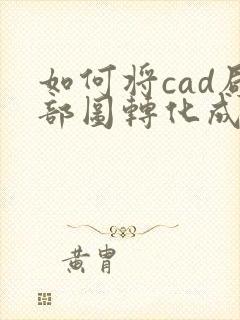 如何将cad局
部圖轉化成
黄胄